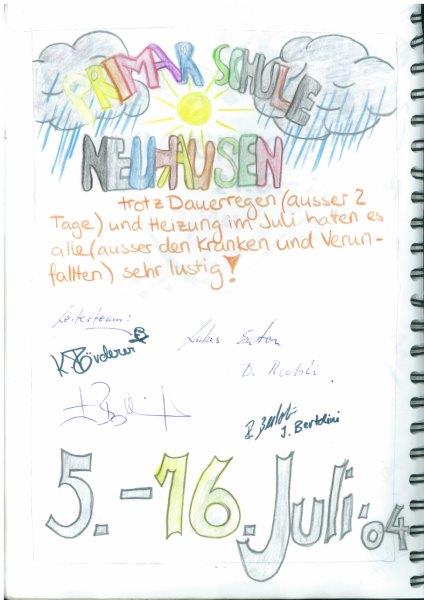 PRIMAR SCHULE
NEUHAUSEN
trotz Dauerregen (ausser 2
Tage) und Heizung im Juli hatten es
alle (ausser den Kranken und Verun-
fallten) sehr lustig!
Leiterteam:
Lukas
D.
J. Bertolini
5.-16. Juli. 04